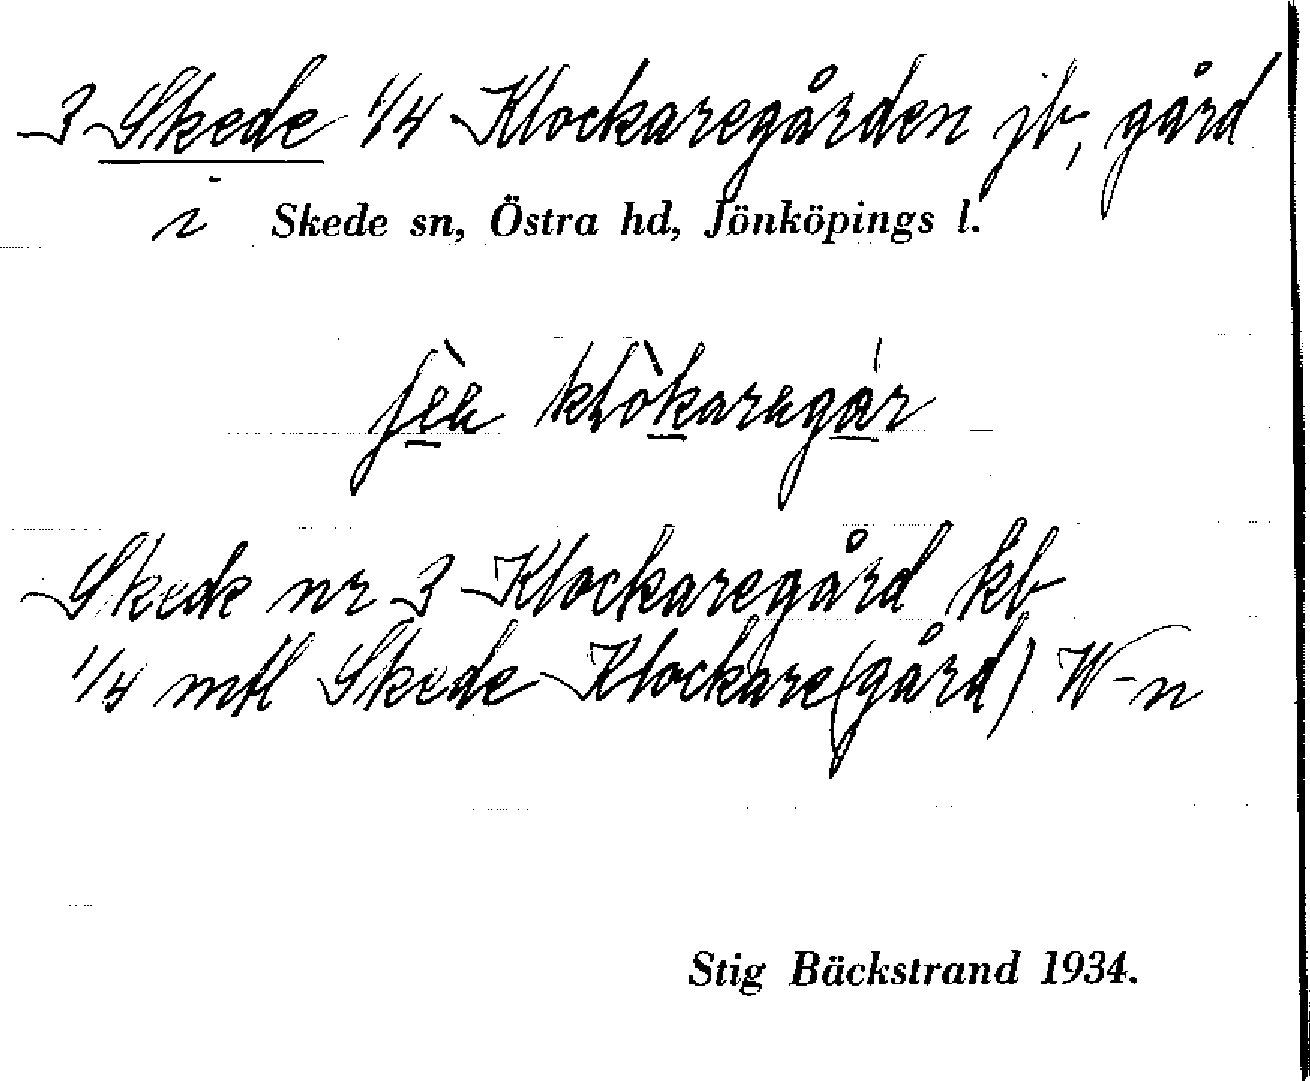 3 Skede 1/4 Klockaregården jb, gård
i Skede sn, Östra hd, Jönköpings l.
Skede nr 3 Klockaregård kb
1/4 mtl Skede Klockare(gård) W-n
Stig Bäckstrand 1934.